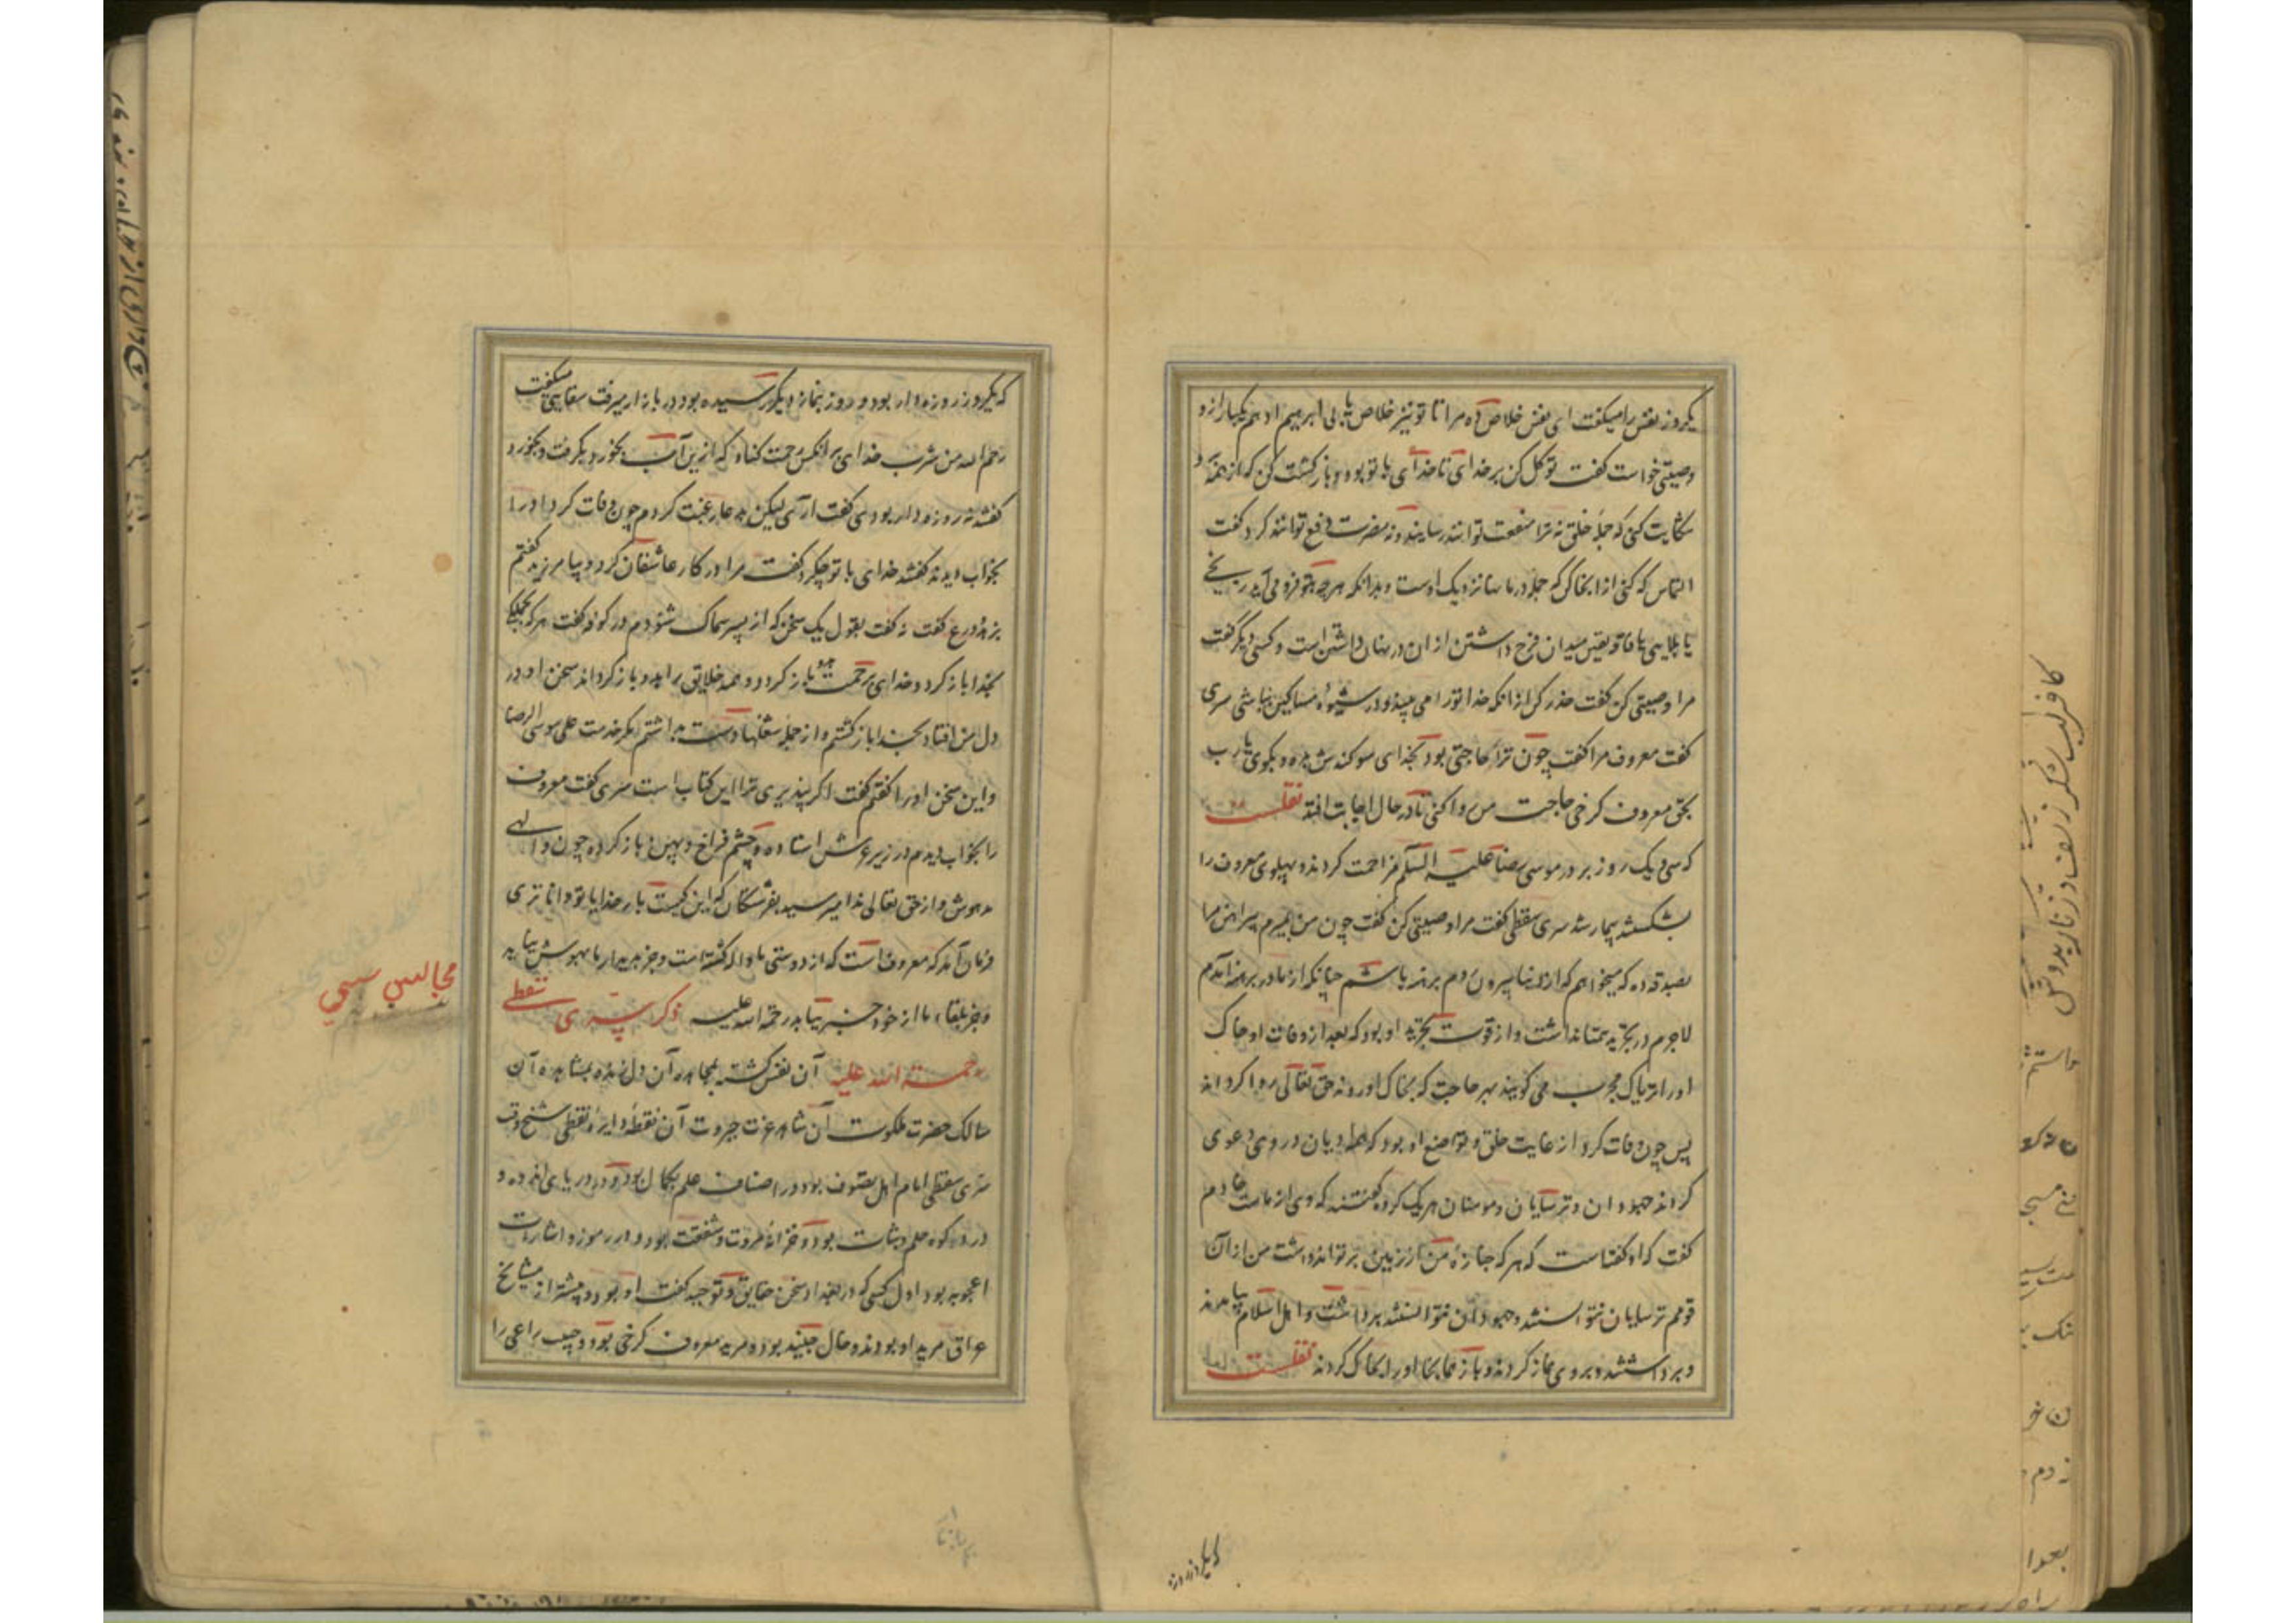 یکروز نفس را میکفت ای نفس خلاص ده مرا تا تو نیز خلاص یابی ابرهیم ادهم یکبار ازو
وصیتی خواست کفت توکل کن بر خدای تا خدای با تو بود و باز کشت کن که از همه
شکایت کنی که جمله خلق نه ترا منفعت توانند رسانند و نه مضرت دفع توانند کرد کفت
التماس که کنی از انجا کن که جمله درمانها نزدیک اوست و بدانکه هرچه بتو فرو می آید رنجی
یا بلایی یا فاقه یقین میدان فرح داشتن از ان در نهان داشتن است و کسی دیگر کفت
مرا وصیتی کن کفت حذر کن از انکه خدا تو را می بیند و در شیوه مساکین نباشی سری
کفت معروف مرا کفت چون ترا حاجتی بود بخدای سوکندش بده و بکوی یا رب
بحق معروف کرخی حاجت من روا کنی تا در حال اجابت افتد نقلست
که یک روز بر در موسی رضا علیه السلم مزاحمت کردند و پهلوی معروف را
بشکستند بیمار شد سری سقطی کفت مرا وصیتی کن کفت چون من بمیرم پیراهن مرا
بصدقه ده که میخواهم که از دنیا بیرون روم برهنه باشم چنانکه از مادر برهنه آمدم
لاجرم در تجرید همتا نداشت و از قوت تجرید او بود که بعد از وفات او خاک
او را تریاک مجرب می کویند بهر حاجت که بخاک او روند حق تعالی روا کرداند
پس چون وفات کرد از غایت خلق و تواضع او بود که همه ادیان در وی دعوی
کردند جهودان و ترسایان و مومنان هر یک کروه کفتند که وی از ماست خادم
کفت که او کفتست که هر که جنازهٔ من از زمین بر تواند داشت من از ان
قومم ترسایان نتوانستند و جهودان نتوانستند برداشت و اهل اسلام بیامدند
و برداشتند و بر وی نماز کردند و باز همانجا او را بخاک کردند نقلست
که یکروز روزه
که یکروز روزه دار بود و روز بنماز دیگر رسیده بود در بازار میرفت سقایی میکفت
رحم الله من شرب خدای بر انکس رحمت کناد که ازین آب بخورد بکرفت و بخورد
کفتند نه روزه دار بودی کفت آری لیکن بدعا رغبت کردم چون وفات کرد او را
بخواب دیدند کفتند خدای با تو چکرد کفت مرا در کار عاشقان کرد و بیامرزید کفتم
بزهد و ورع کفت نه کفت بقول یک سخن که از پسر سماک شنودم در کوفه کفت هر که بجملکی
بخدا باز کردد خدای برحمت بدو باز کردد و همه خلایق را بدو باز کرداند سخن او در
دل من افتاد بخدا باز کشتم و از جمله شغلها دست بداشتم مکر خدمت علی موسی الرضا
و این سخن او را کفتم کفت اکر بپذیری ترا این کتاب است سری کفت معروف
را بخواب دیدم در زیر عرش استاده و چشم فراخ و پهن باز کرده چون والهی
مدهوش و از حق تعالی ندا میرسید بفرشتکان که این کیست بار خدایا تو داناتری
فرمان آمد که معروف است که از دوستی ما واله کشته است و جز بدیدار ما بهوش نیاید
و جز بلقاء ما از خود خبر نیابد رحمة الله علیه ذکر سری سقطی
رحمة الله علیه آن نفس کشته بمجاهده آن دل زنده بمشاهده آن
سالک حضرت ملکوت آن شاهد عزت جبروت آن نقطه دایرهٔ نقطی شیخ وقت
سری سقطی امام اهل تصوف بود و در اصناف علم بکمال بود و در دریای اندوه و
درد کوه حلم و ثبات بود و خزانهٔ مروت و شفقت بود و در رموز و اشارت
اعجوبه بود اول کسی که در بغداد سخن حقایق و توحید کفت او بود و بیشتر از مشایخ
عراق مرید او بودند و خال جنید بود و مرید معروف کرخی بود و حبیب راعی را
مجالس سی